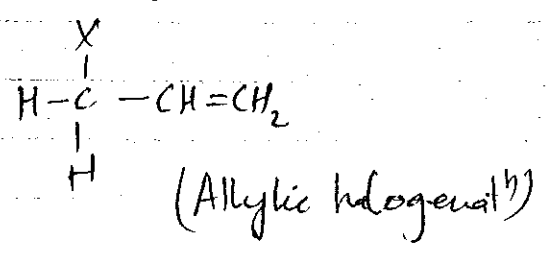 X
|
H-C-CH=CH₂
|
H
(Allylic halogenatⁿ)